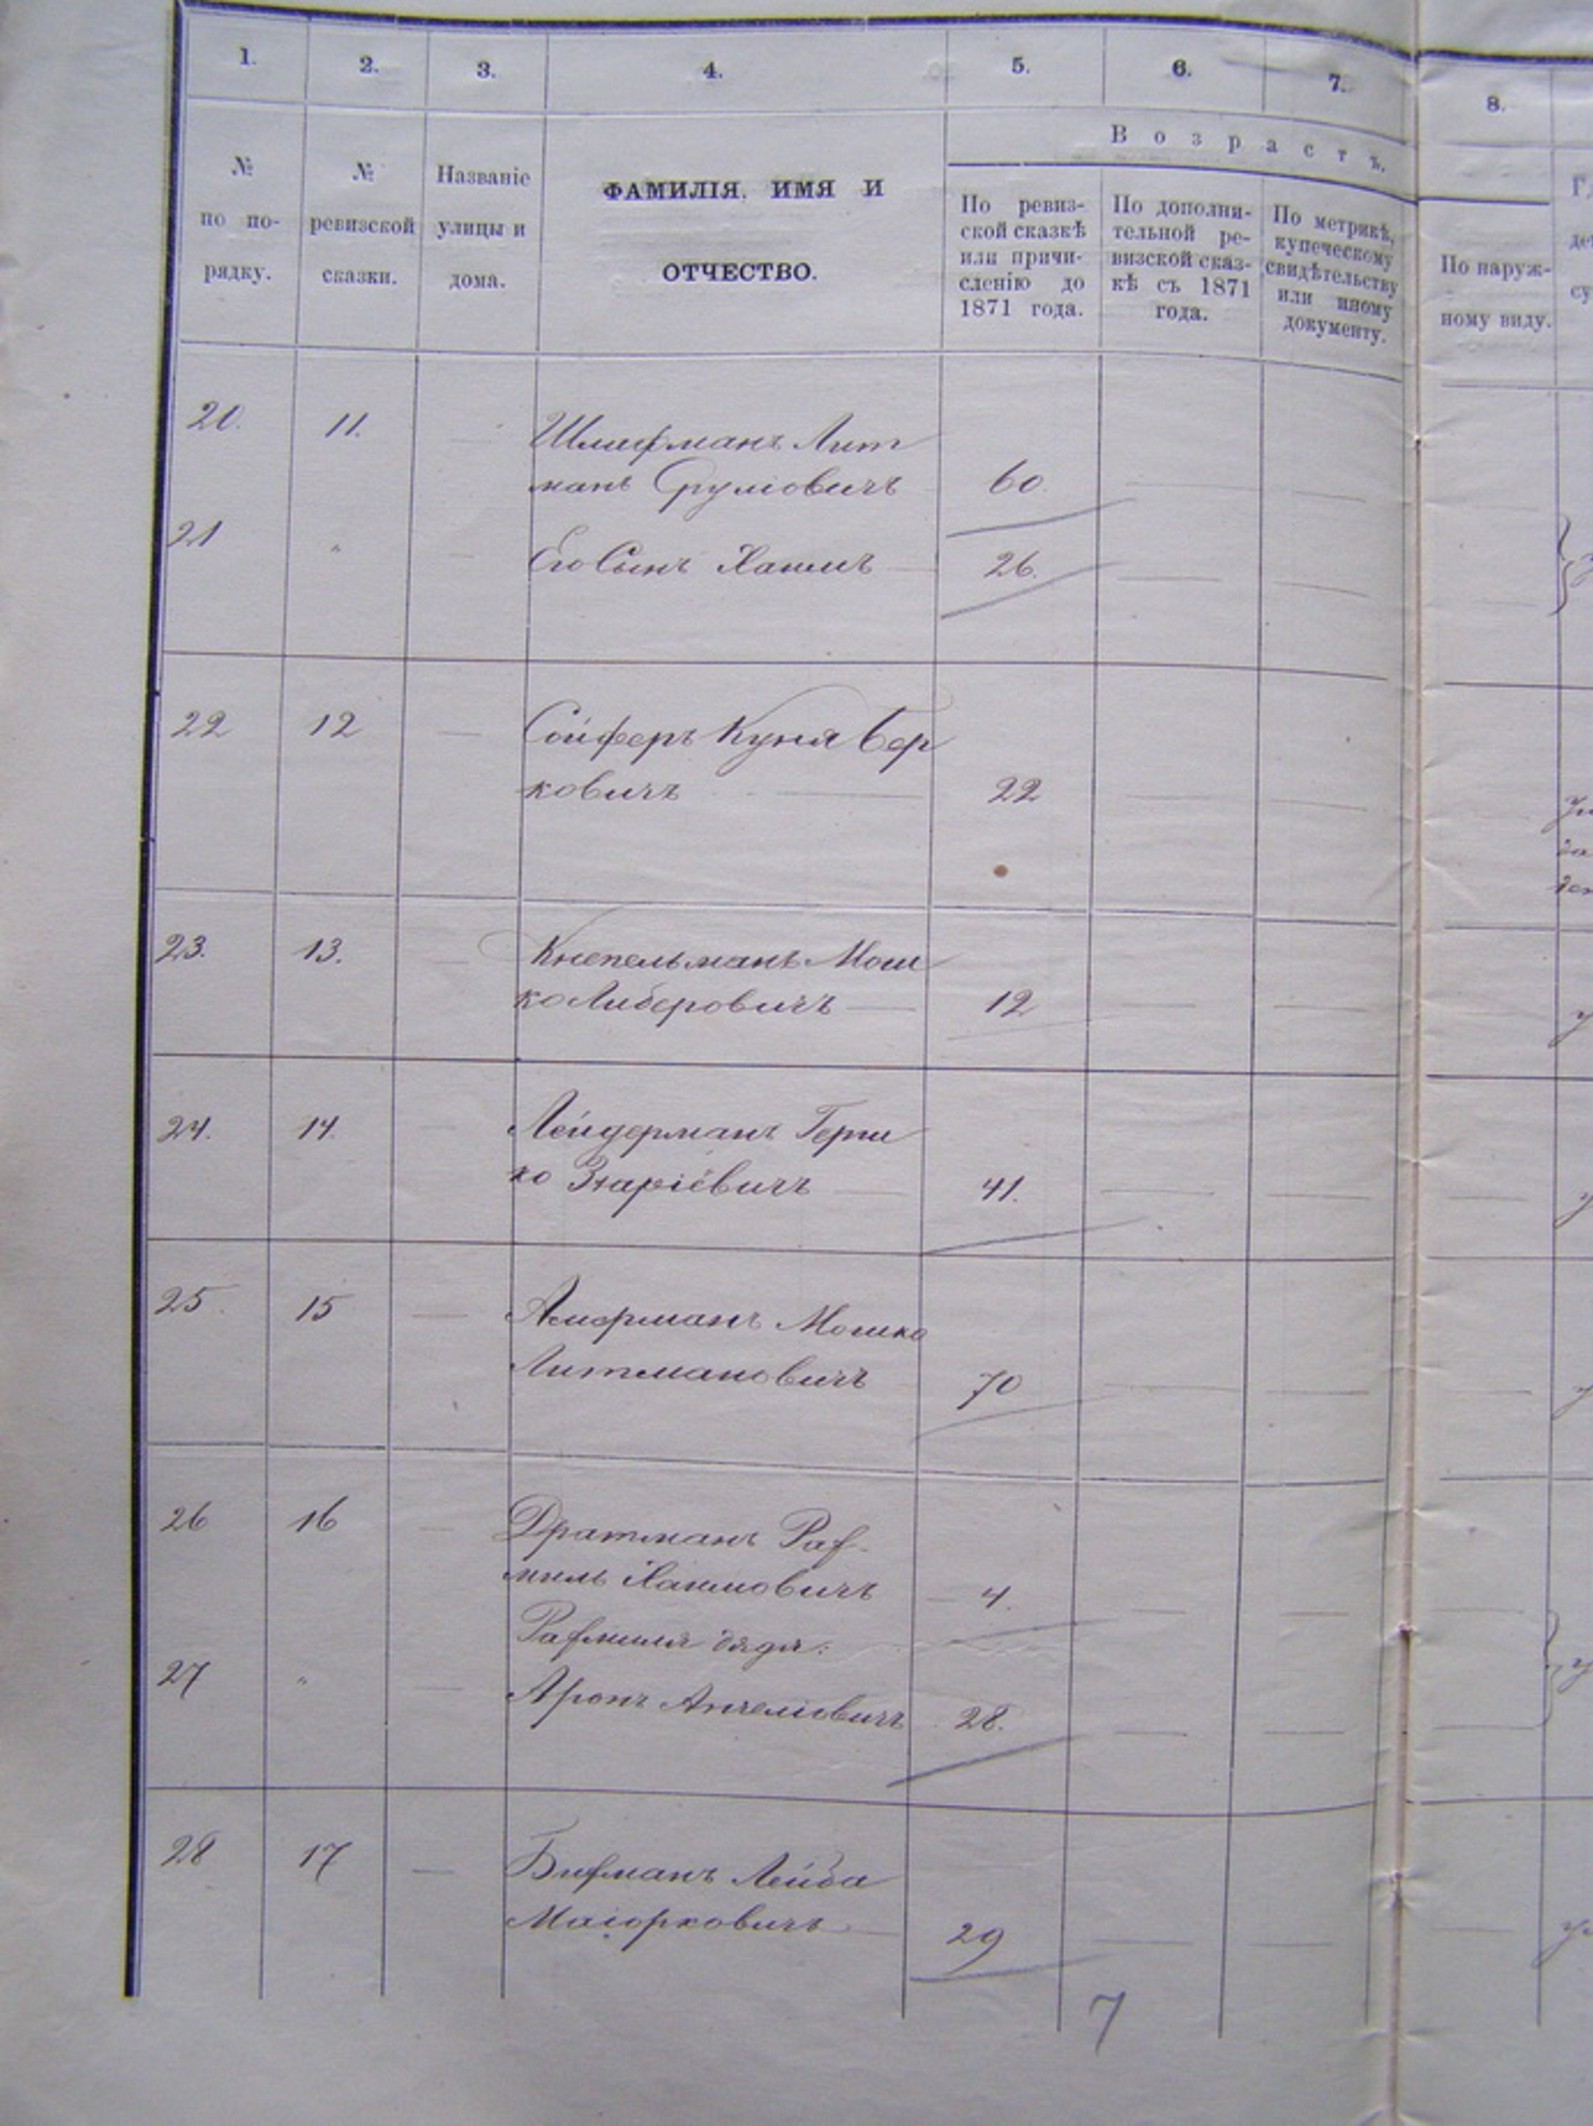 1. 2. 3. 4. 5. 6. 7. 8.
№
по по-
рядку.
№
ревизской
сказки.
Названіе
улицы и
дома.
ФАМИЛІЯ, ИМЯ И
ОТЧЕСТВО.
Возрастъ.
По ревиз-
ской сказкѣ
или причи-
сленію до
1871 года.
По дополни-
тельной ре-
визской сказ-
кѣ съ 1871
года.
По метрикѣ,
купеческому
свидѣтельству
или иному
документу.
По наруж-
ному виду.
20. 11. — Шлафманъ Лит
манъ Сруліовичъ 60 — —
21 " — Его Сынъ Хаимъ — 26. — —
22 12 — Сойферъ Куня Бер
ковичъ — 22 — —
23. 13. — Кнепельманъ Мош
ко Либеровичъ — 12 — —
24. 14. — Лейдерманъ Герш
ко — 41. — —
25. 15 — Мошко
Литмановичъ 70 — —
26 16 — Дратманъ Раф-
миль Хаимовичъ 4. — —
Рафмиля дядя:
27 " — Аронъ Анчеліовичъ 28. — —
28 17 — Бифманъ Лейба
Маіорковичъ — 29 — —
7